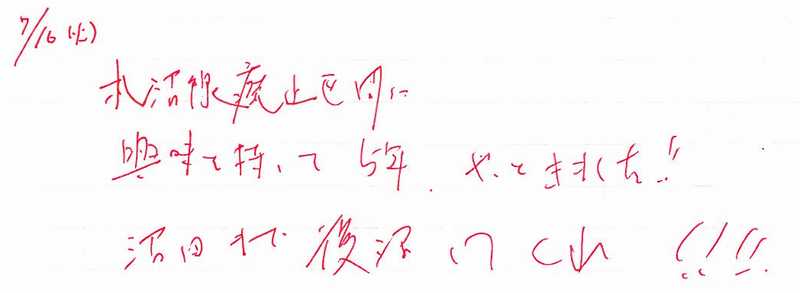 7/16 (火)
札沼線廃止区間に
興味を持って5年、やっときました!!
沼田まで復活してくれ !!!!